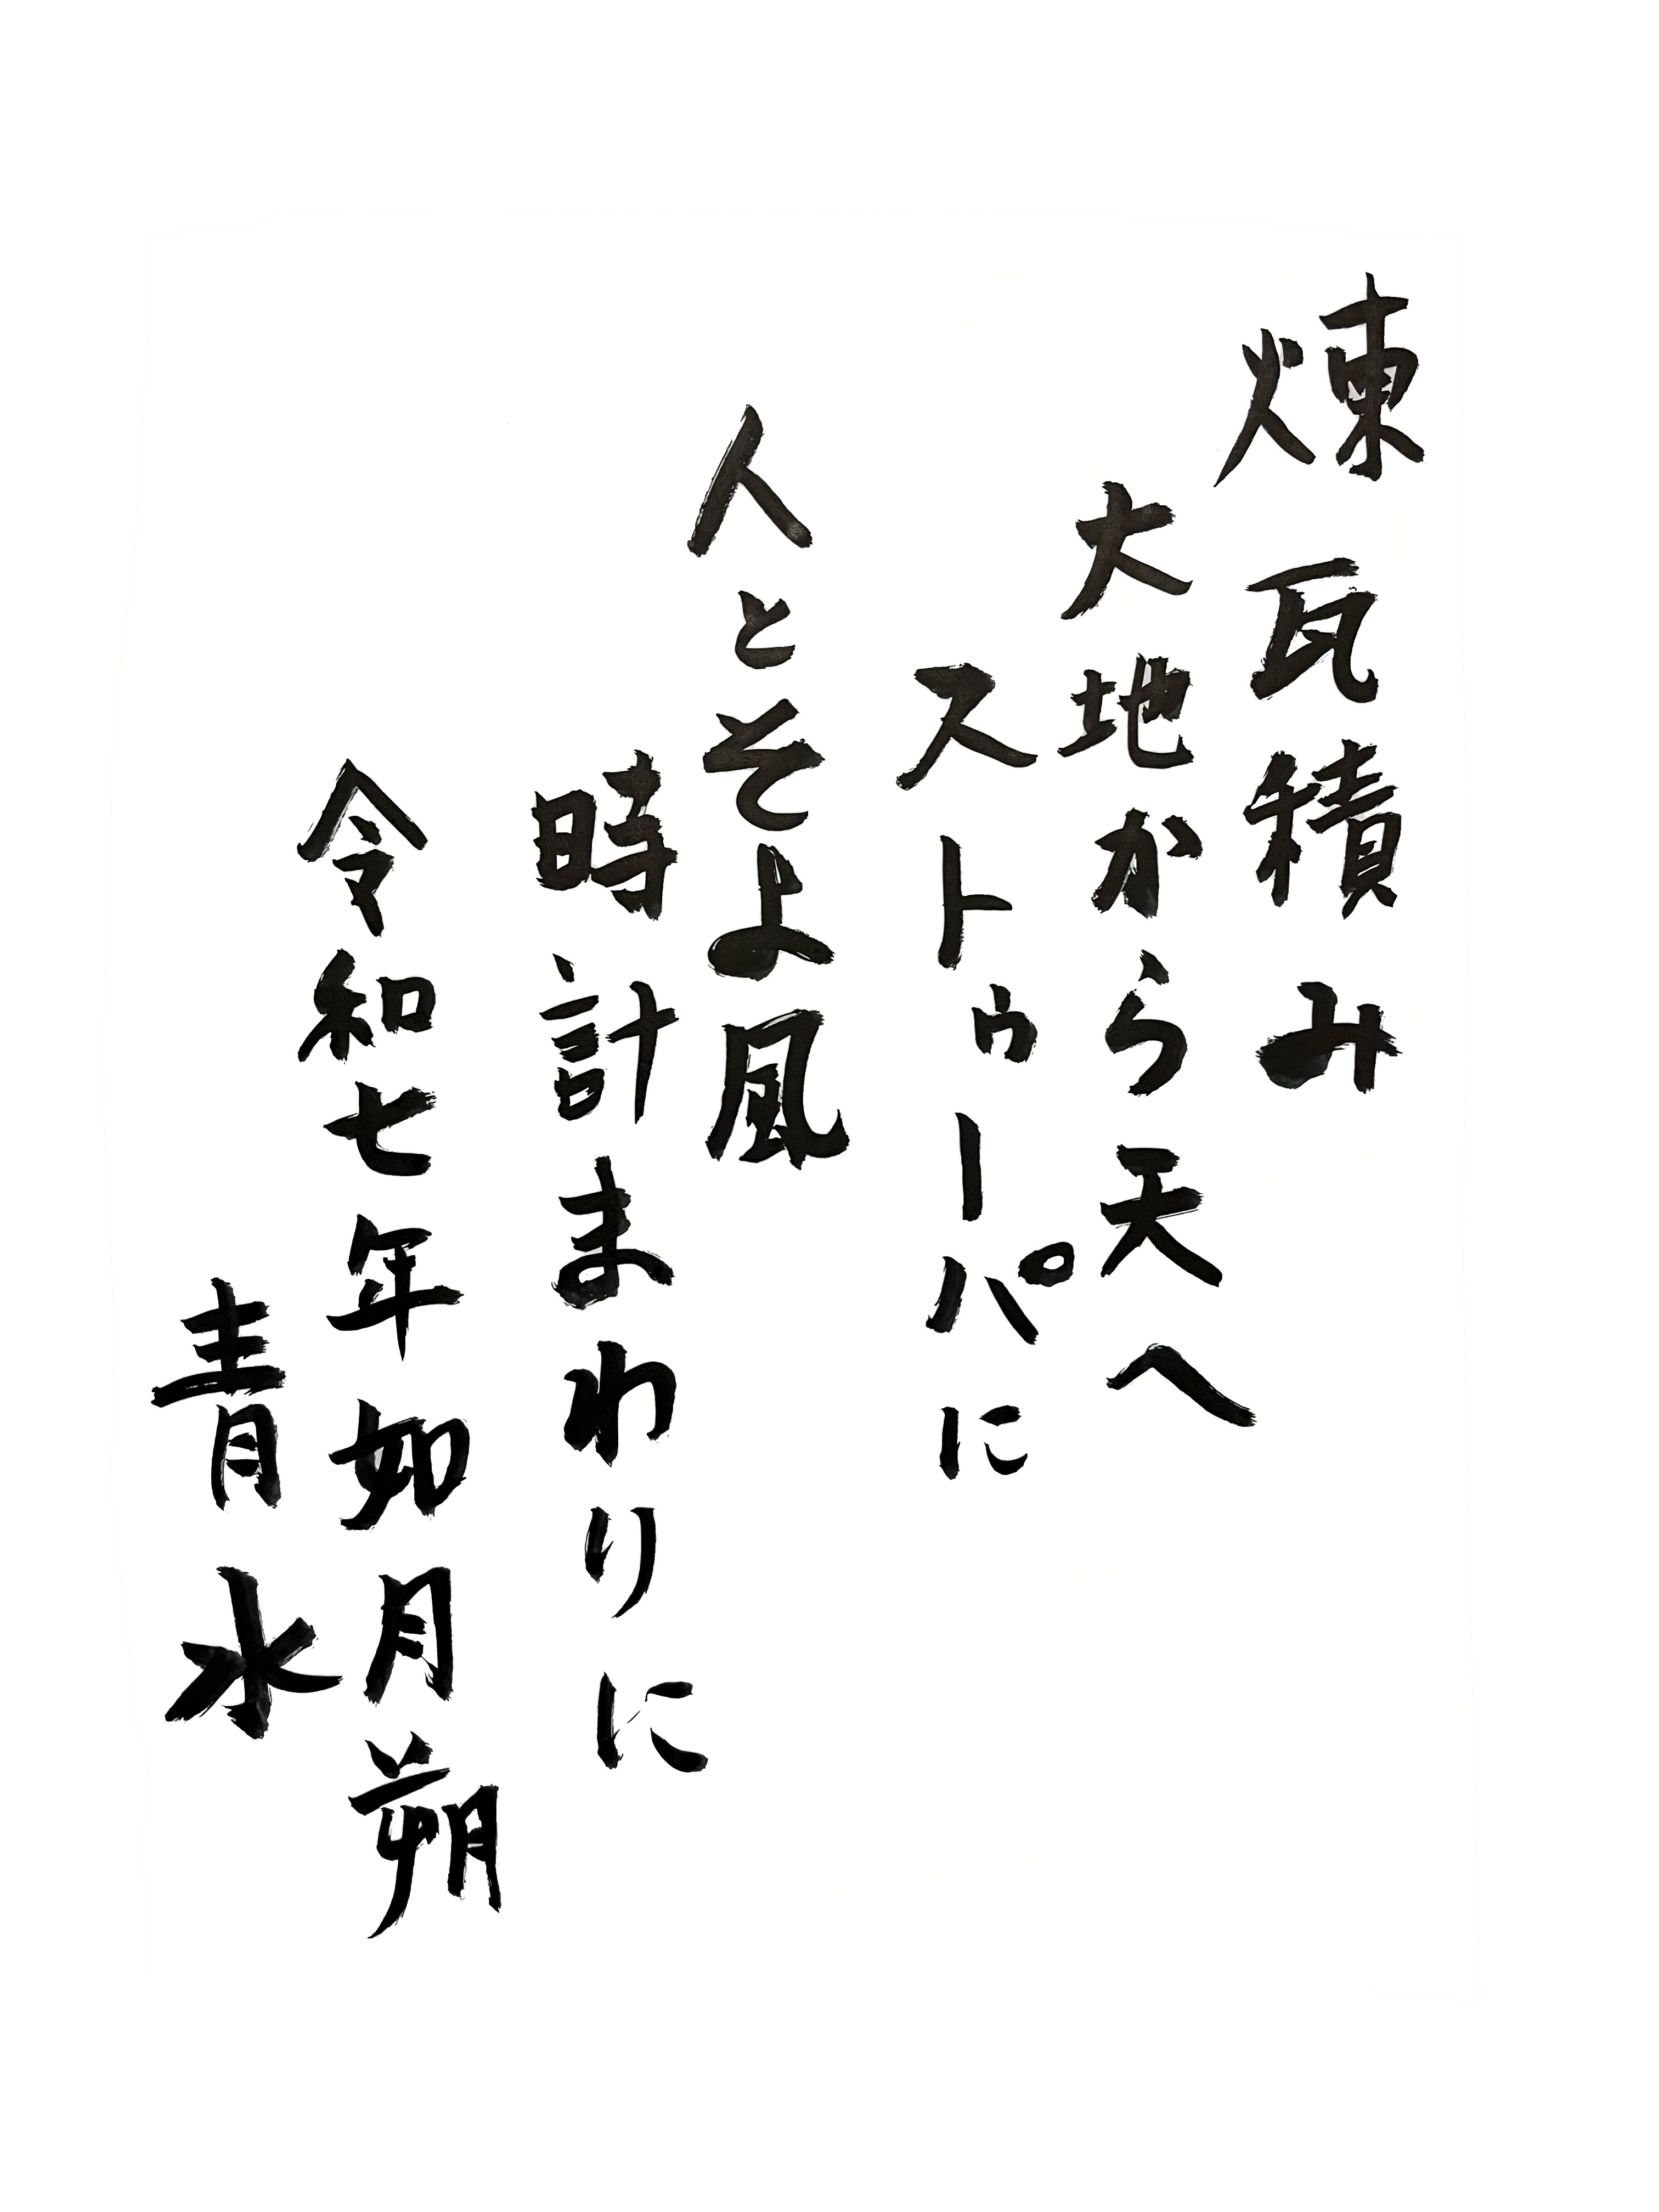 煉瓦積み
大地から天へ
ストゥーパに
人とそよ風
時計まわりに
令和七年如月朔
青水